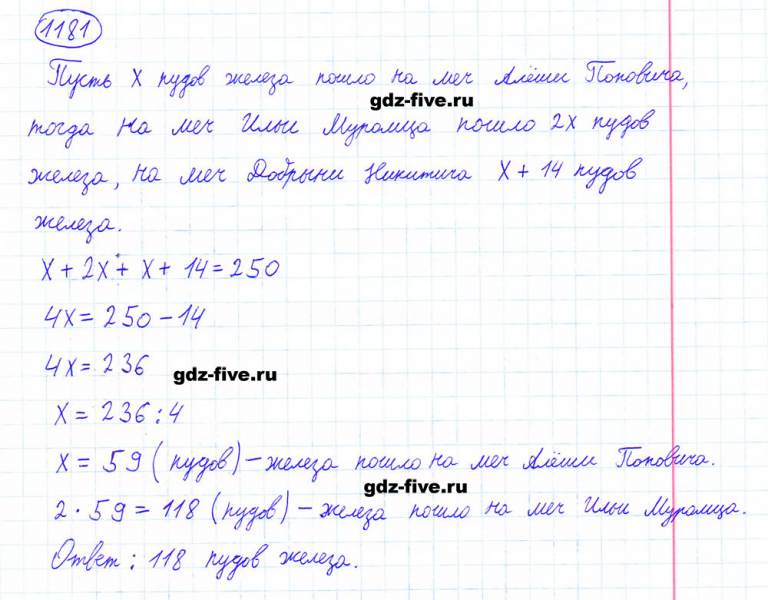 1181
Пусть х пудов железа пошло на меч Алёши Поповича,
gdz-five.ru
тогда на меч Ильи Муромца пошло 2х пудов
железа, на меч Добрыни Никитича х + 14 пудов
железа.
х + 2х + х + 14 = 250
4х = 250 - 14
4х = 236
gdz-five.ru
х = 236 : 4
х = 59 (пудов) - железа пошло на меч Алёши Поповича.
gdz-five.ru
2 · 59 = 118 (пудов) - железа пошло на меч Ильи Муромца.
Ответ: 118 пудов железа.